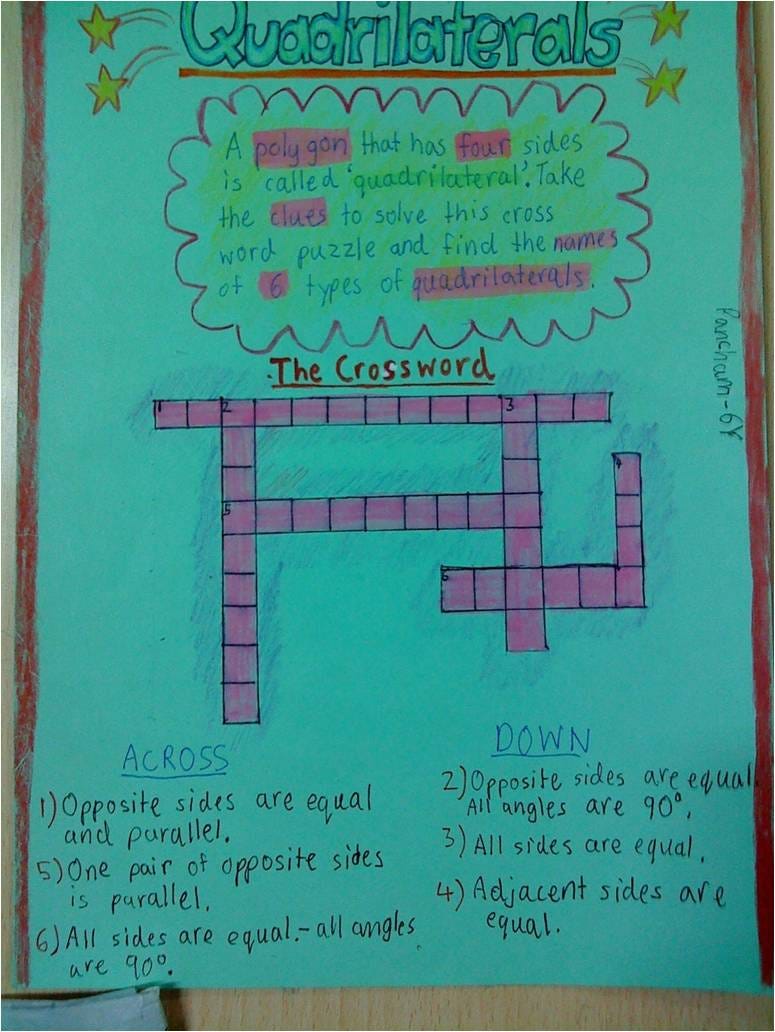 Quadrilaterals
A polygon that has four sides
is called 'quadrilateral'. Take
the clues to solve this cross
word puzzle and find the names
of 6 types of quadrilaterals.
The Crossword
1 2 3
4
5
6
Pancham-6Y
ACROSS
1) Opposite sides are equal
and parallel.
5) One pair of opposite sides
is parallel.
6) All sides are equal.- all angles
are 90°.
DOWN
2) Opposite sides are equal.
All angles are 90°.
3) All sides are equal.
4) Adjacent sides are
equal.